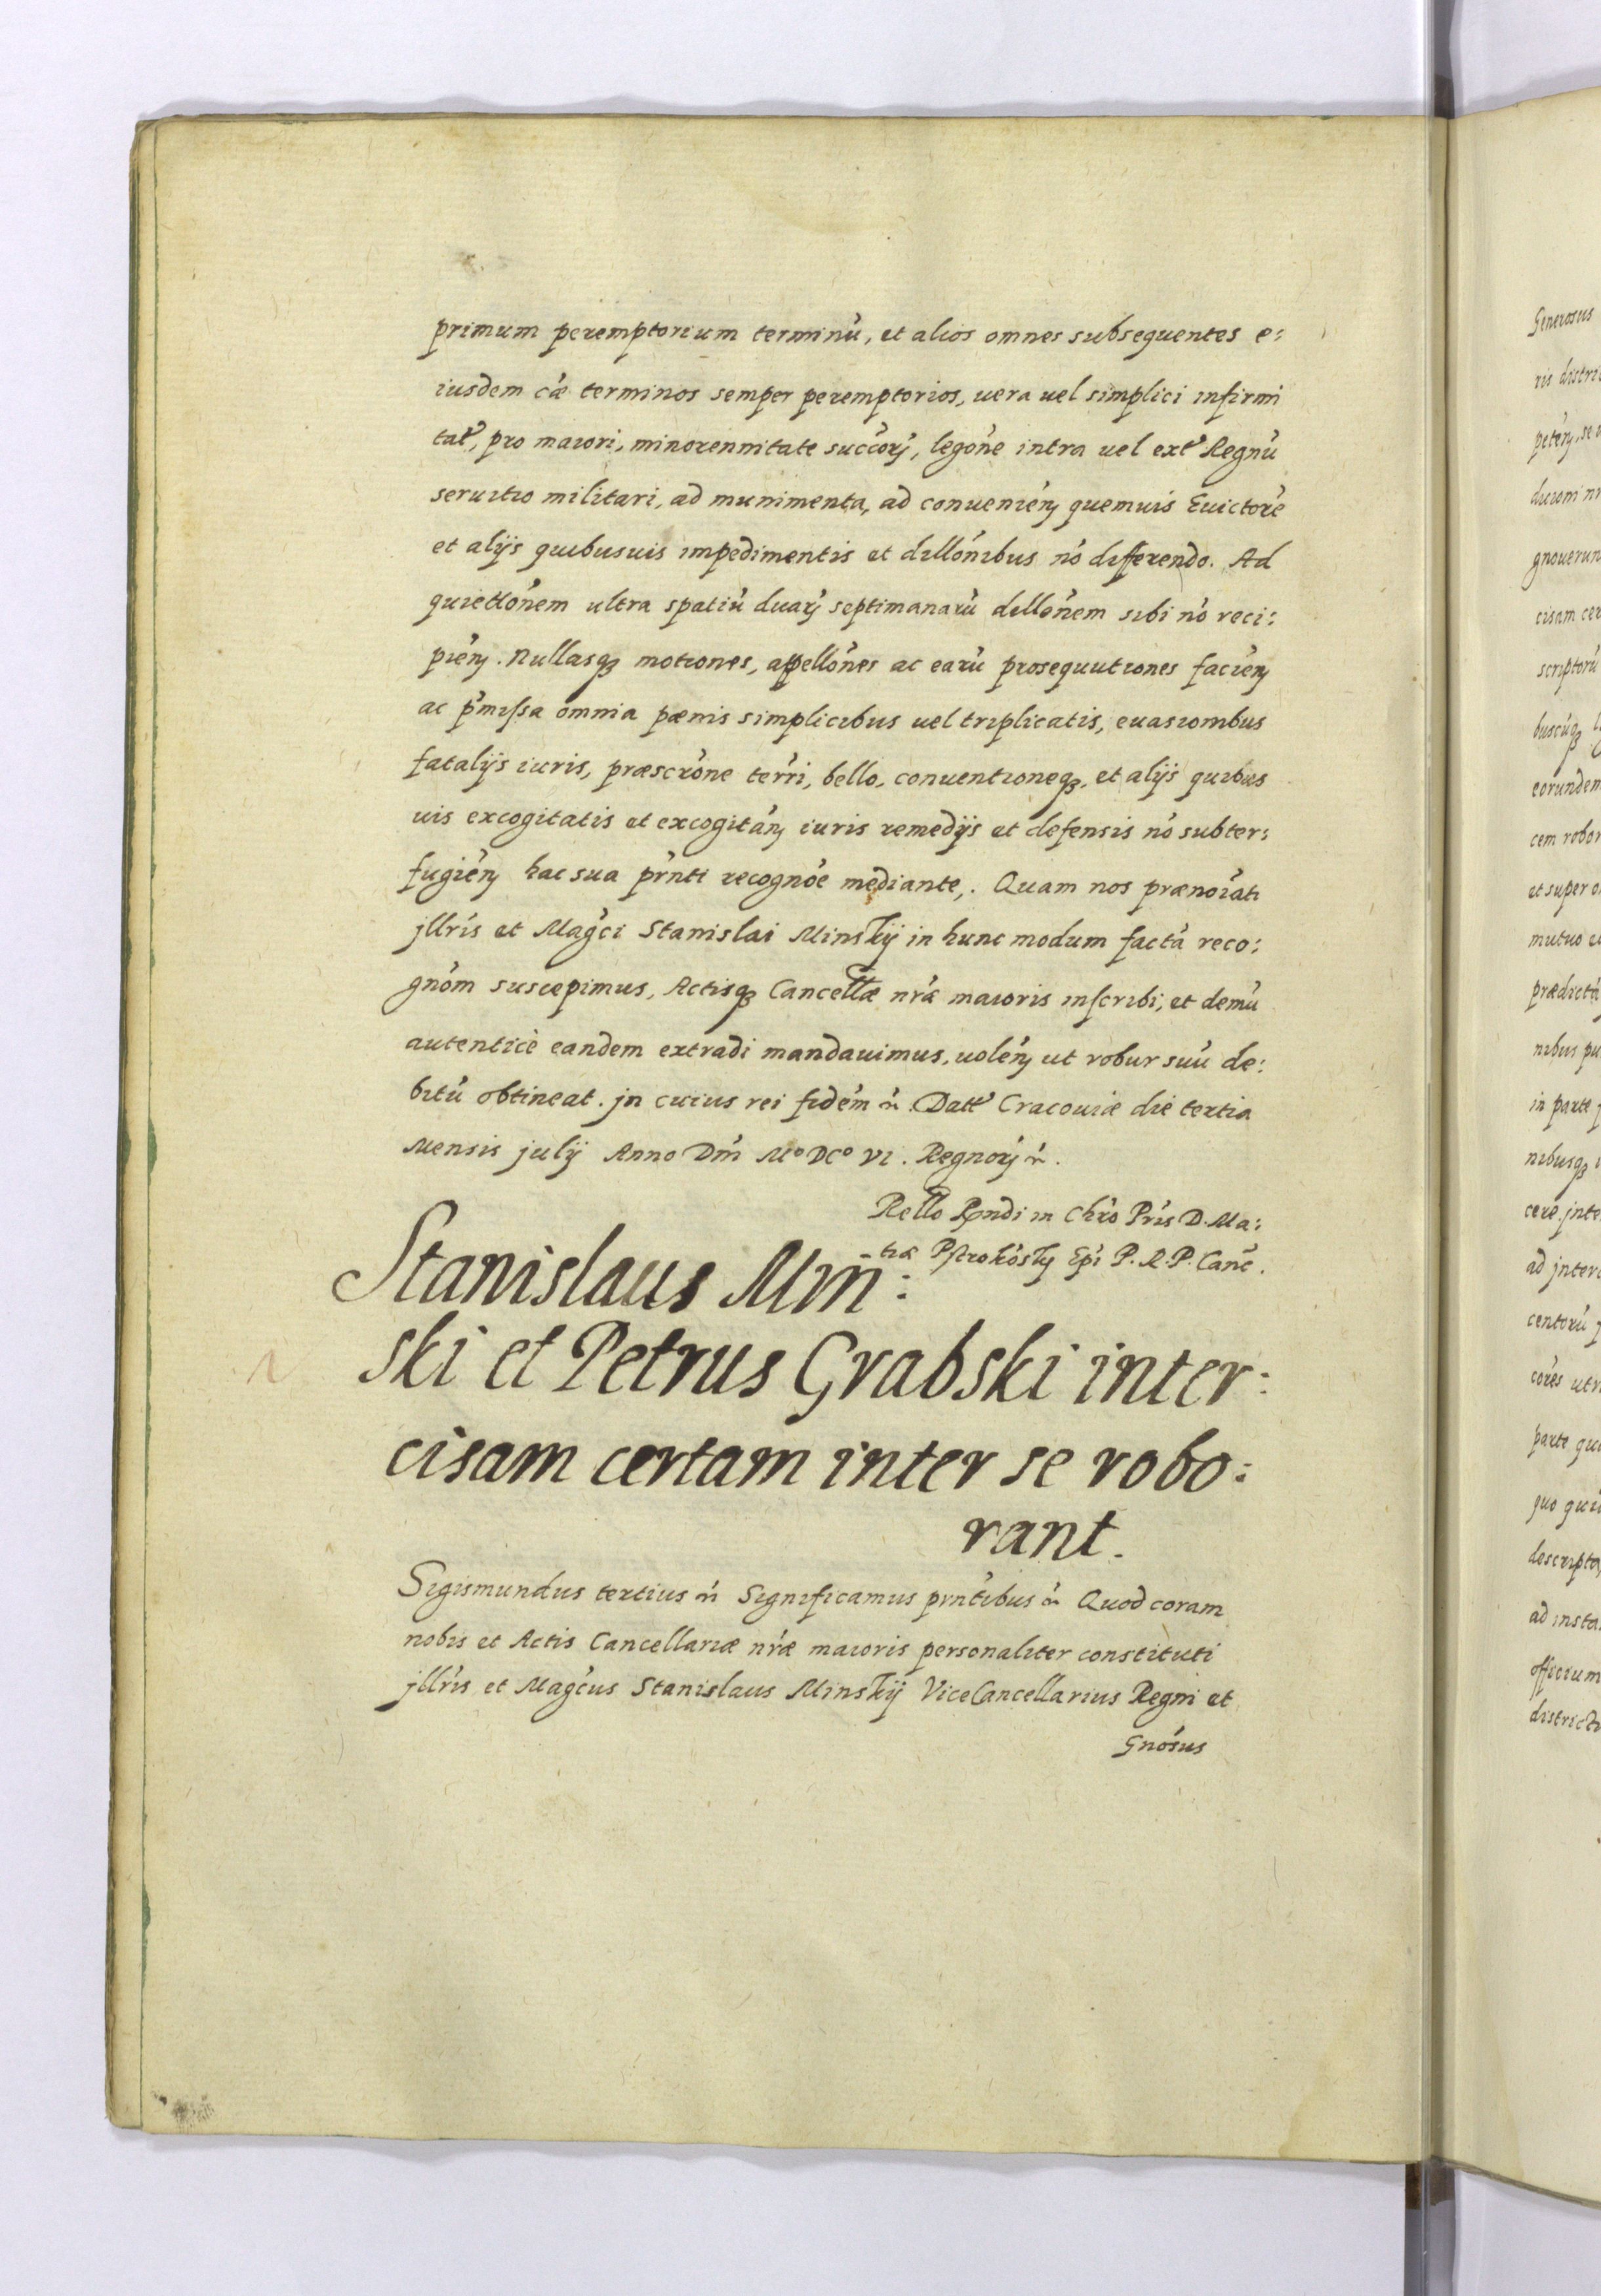 primum peremptorium terminũ, et alios omnes subsequentes e:
iusdem cãe terminos semper peremptorios, uera uel simplici infirmi
tat̃, pro maiori, minorennitate succorꝝ, legõne intra uel ext̃ Regnũ
seruitio militari, ad munimenta, ad conueniẽn quemuis Euictorẽ
et alijs quibusuis impedimentis et dillõnibus nõ differendo. Ad
quietõnem ultra spatiũ duarꝝ septimanarũ dillõnem sibi nõ reci:
piẽn. Nullasqꝫ motiones, appellõnes ac earũ prosequutiones faciẽn
ac p̃missa omnia pœnis simplicibus uel triplicatis, euasionibus
fatalijs iuris, præscrõne ter̃ri, bello, conuentioneqꝫ, et alijs quibus
uis excogitatis et excogitãn iuris remedijs et defensis nõ subter:
fugiẽn hac sua pr̃nti recognõe mediante,. Quam nos prænoĩati
jllr̃is et Mag̃ci Stanislai Minskij in hunc modum factã reco:
gnõm suscepimus, Actisqꝫ Cancellæ nr̃æ maioris inscribi, et demũ
autenticè eandem extradi mandauimus, uolẽn ut robur suũ de:
bitũ obtineat. jn cuius rei fidẽm ẽ. Datt̃ Cracouiæ die tertia
Mensis julij Anno Dñi Mº DCº VI. Regnorꝝ ẽ.
Rello Rñdi in Chr̃o Pr̃is D. Ma:
tiæ Pstrokõsky Epĩ P. R. P. Canc̃.
Stanislaus Min̄:
ski et Petrus Grabski inter:
cisam certam inter se robo:
rant.
Sigismundus tertius ẽ Significamus prñtibus ẽ Quod coram
nobis et Actis Cancellariæ nr̃æ maioris personaliter constituti
jllr̃is et Mag̃cus Stanislaus Minskij ViceCancellarius Regni et
Gnõsus